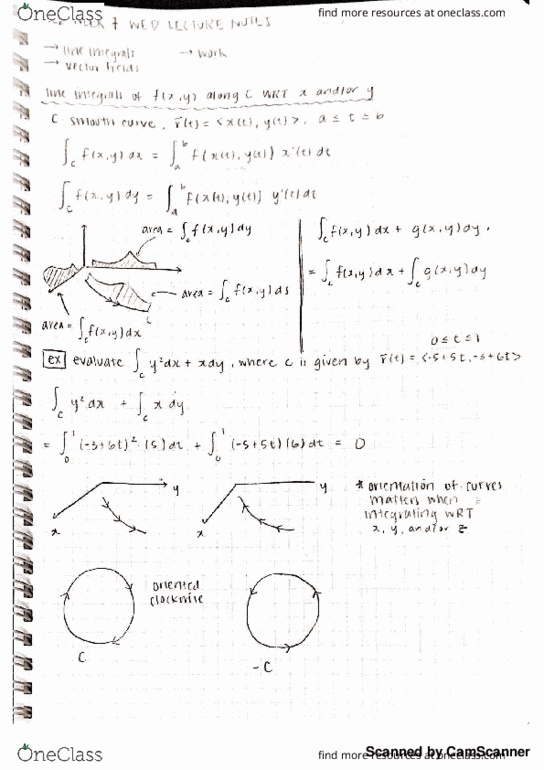 OneClass
find more resources at oneclass.com
WED LECTURE NOTES
→ line integrals → work
→ vector fields
line integrals of f(x,y) along C WRT x and/or y
C smooth curve, r⃗(t) = <x(t), y(t)>, a ≤ t ≤ b
∫_C f(x,y) dx = ∫_a^b f(x(t), y(t)) x'(t) dt
∫_C f(x,y) dy = ∫_a^b f(x(t), y(t)) y'(t) dt
area = ∫_C f(x,y) dy
area = ∫_C f(x,y) ds
C
area = ∫_C f(x,y) dx
∫_C f(x,y) dx + g(x,y) dy
= ∫_C f(x,y) dx + ∫_C g(x,y) dy
0 ≤ t ≤ 1
ex evaluate ∫_C y² dx + x dy, where C is given by r⃗(t) = <-5+5t, -3+6t>
∫_C y² dx + ∫_C x dy
= ∫_0^1 (-3+6t)² (5) dt + ∫_0^1 (-5+5t)(6) dt = 0
y
x
y
x
* orientation of curves
matters when
integrating WRT
x, y, and/or z
oriented
clockwise
C
-C
OneClass
find more resources at oneclass.com
Scanned by CamScanner